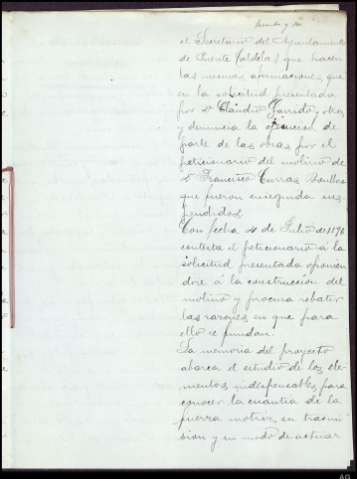 el Secretario del Ayuntamiento
de Puente Caldelas que hacen
las mismas afirmaciones que
en la solicitud presentada
por D. Claudio Garrido y otros
y denuncia la ejecución de
parte de las obras por el
peticionario del molino de
D. Francisco Curras
que fueron enseguida sus-
pendidas.
Con fecha de Julio de 1190
contesta el peticionario á la
solicitud presentada oponien
dose á la construccion del
molino y procura rebatir
las razones en que para
ello se fundan.
La memoria del proyecto
abarca el estudio de los ele-
mentos indispensables para
conocer la cuantia de la
fuerza motriz, su trasmi
sion y su modo de actuar
AG